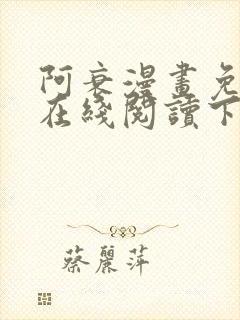 阿衰漫畫免
在綫閱讀下
蔡麗萍